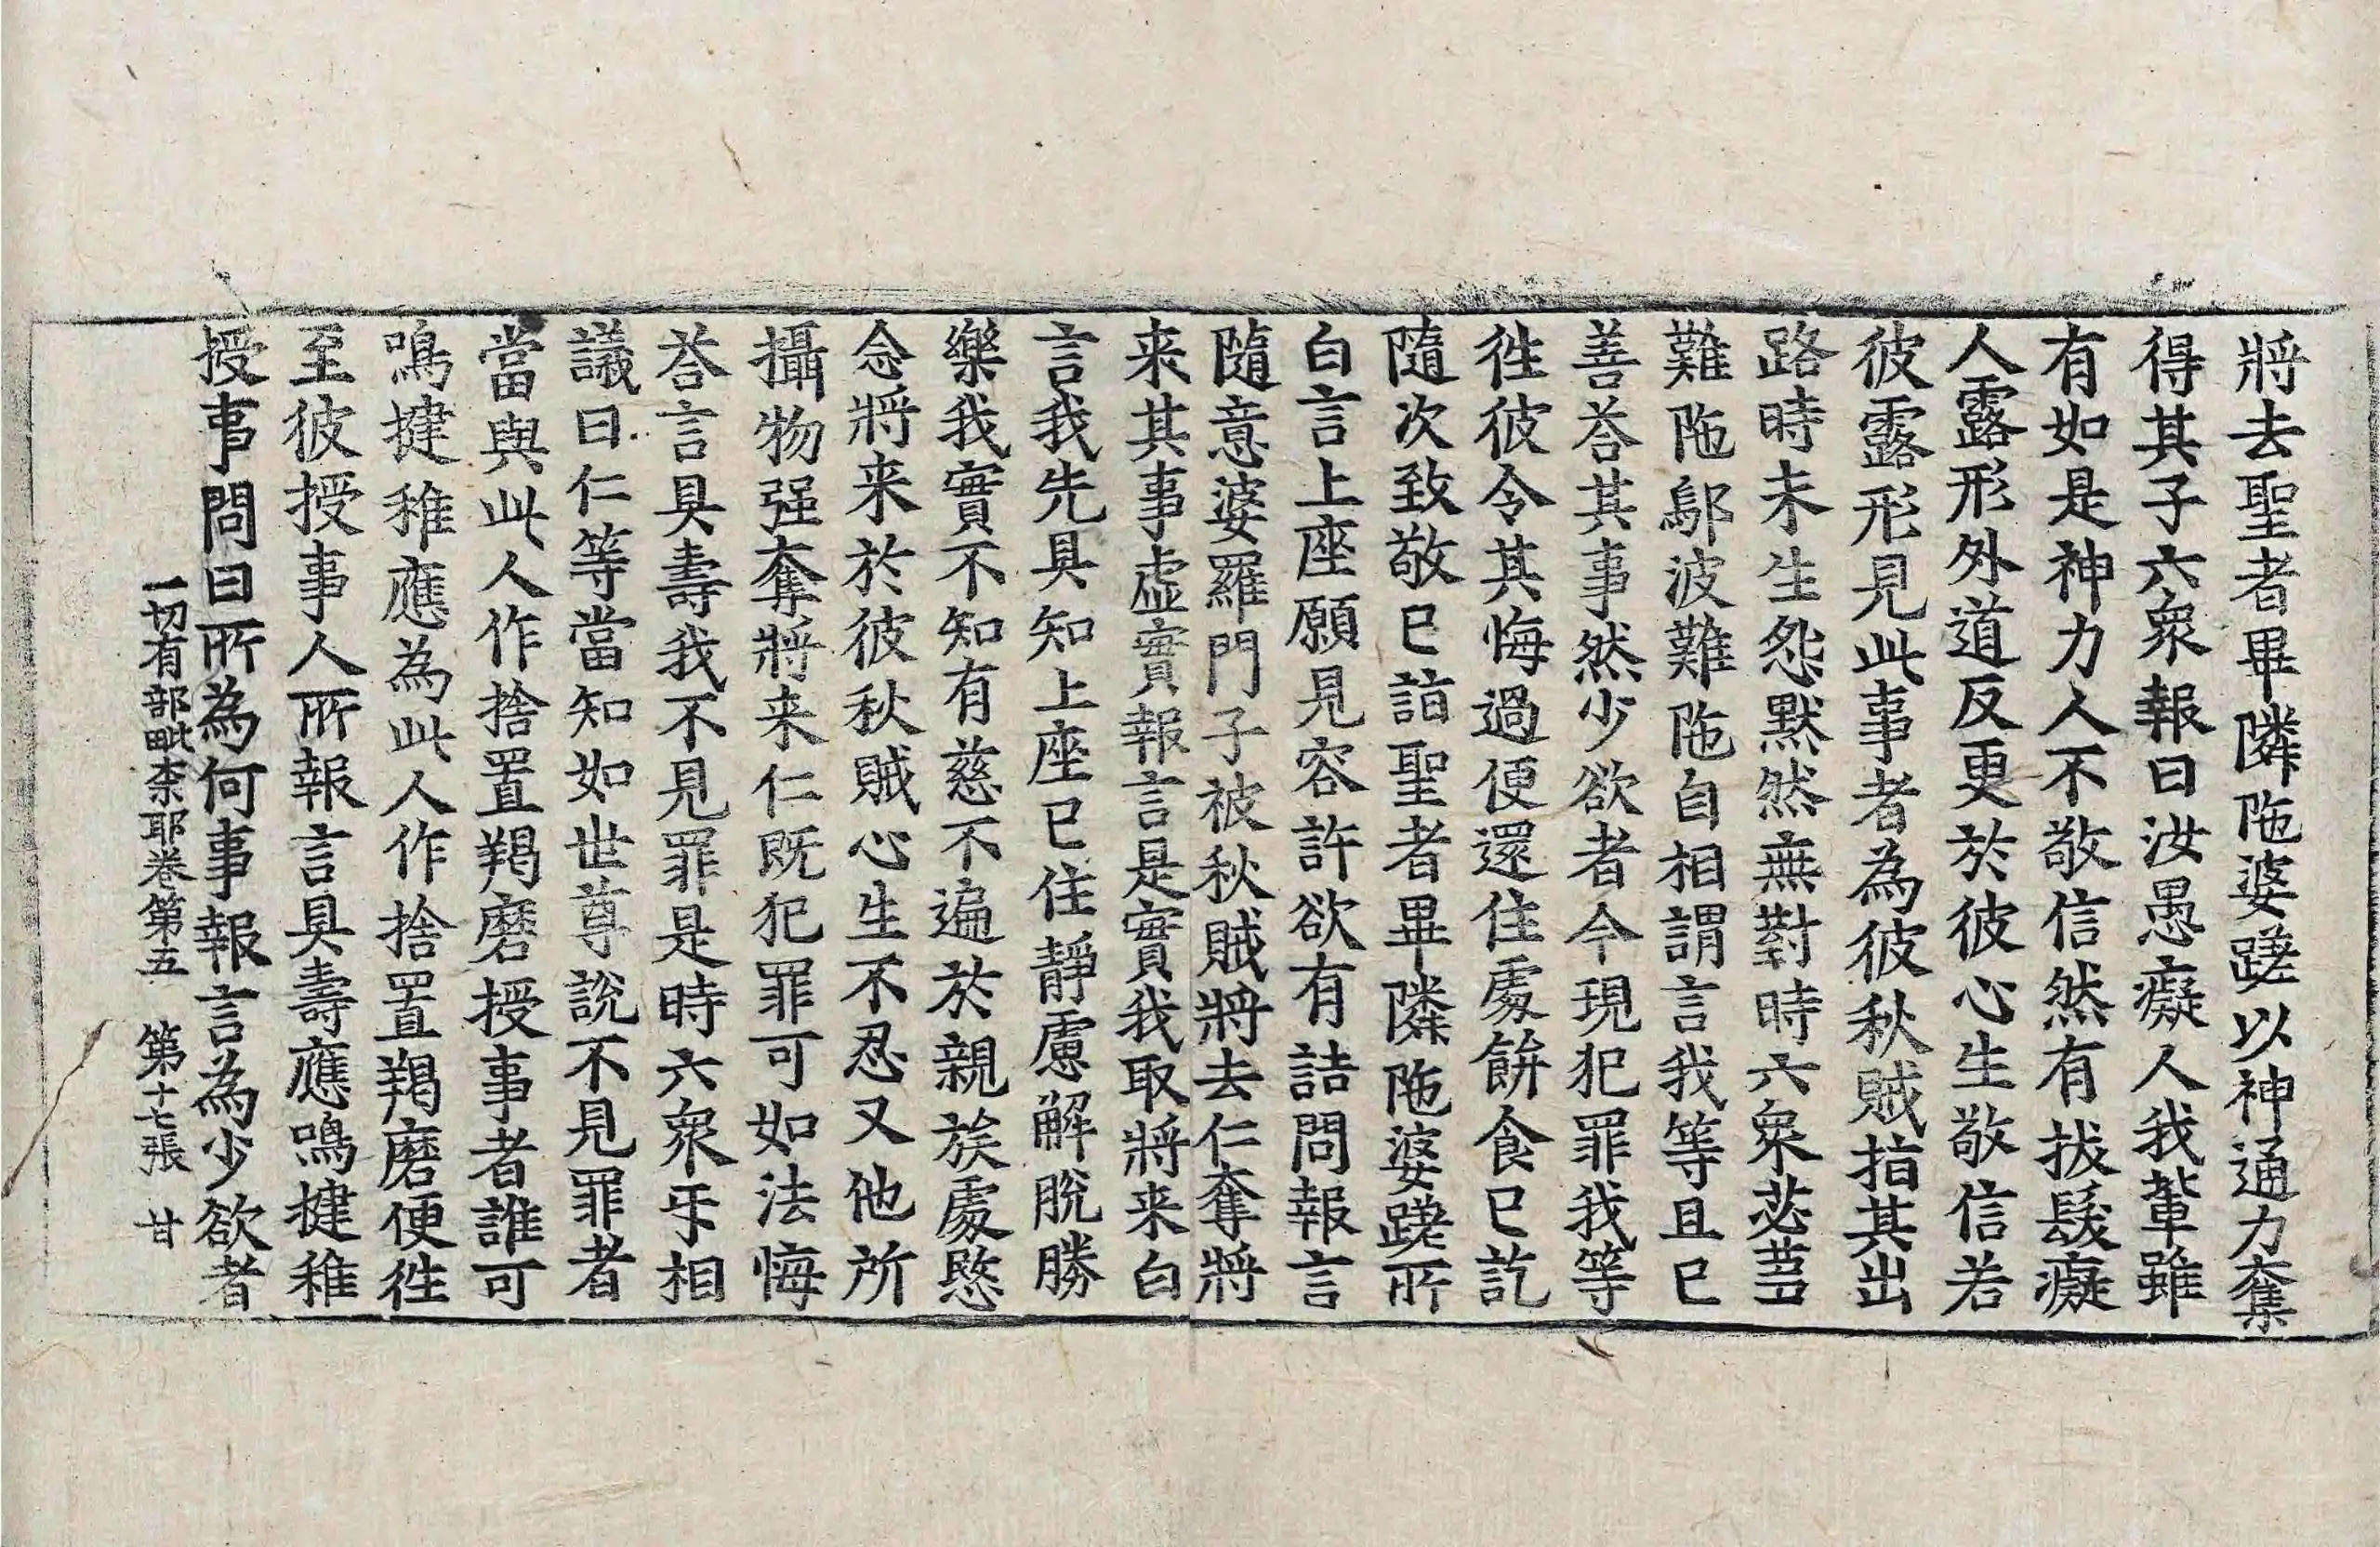 將去聖者畢隣陁婆蹉以神通力奪
得其子六衆報曰汝愚癡人我輩雖
有如是神力人不敬信然有拔髮癡
人露形外道反更於彼心生敬信若
彼露形見此事者為彼秋賊指其出
路時未生怨黙然無對時六衆苾芻
難陁鄔波難陁自相謂言我等且已
善荅其事然少欲者今現犯罪我等
徃彼令其悔過便還住處餅食已訖
隨次致敬已詣聖者畢隣陁婆蹉所
白言上座願見容許欲有詰問報言
隨意婆羅門子被秋賊將去仁奪將
来其事虚實報言是實我取將来白
言我先具知上座已住靜慮解脫勝
樂我實不知有慈不遍於親族處愍
念將来於彼秋賊心生不忍又他所
攝物强奪將来仁既犯罪可如法悔
荅言具壽我不見罪是時六衆乎相
議曰仁等當知如世尊說不見罪者
當與此人作捨置羯磨授事者誰可
鳴揵稚應為此人作捨置羯磨便徃
至彼授事人所報言具壽應鳴揵稚
授事問曰所為何事報言為少欲者
一切有部毗柰耶卷第五　第十七張　甘